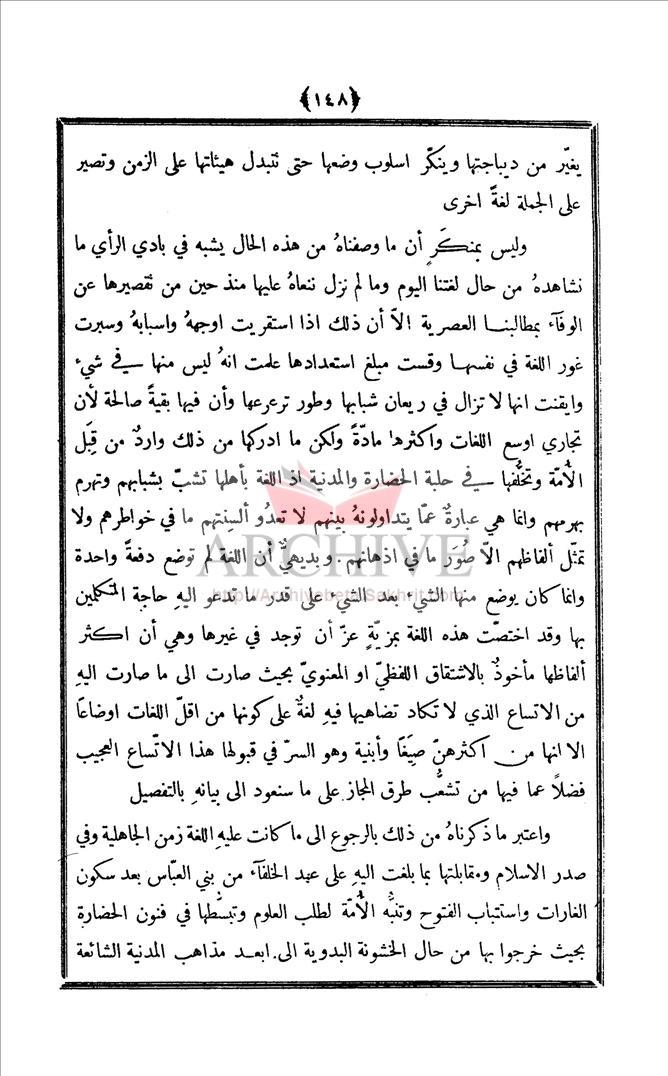 ﴿١٤٨﴾
يغيّر من ديباجتها وينكّر اسلوب وضعها حتى تتبدل هيئاتها على الزمن وتصير
على الجملة لغةً اخرى
وليس بمنكَرٍ أن ما وصفناهُ من هذه الحال يشبه في بادي الرأي ما
نشاهدهُ من حال لغتنا اليوم وما لم نزل ننعاهُ عليها منذ حين من تقصيرها عن
الوفآء بمطالبنا العصرية الاّ أن ذلك اذا استقريت اوجههُ واسبابهُ وسبرت
غور اللغة في نفسها وقست مبلغ استعدادها علمت انهُ ليس منها في شيء
وايقنت انها لا تزال في ريعان شبابها وطور ترعرعها وأن فيها بقيةً صالحة لأن
تجاري اوسع اللغات واكثرها مادّةً ولكن ما ادركها من ذلك واردٌ من قِبَل
الأُمّة وتخلُّفها في حلبة الحضارة والمدنية اذ اللغة بأهلها تشبّ بشبابهم وتهرم
بهرمهم وانما هي عبارةٌ عمّا يتداولونهُ بينهم لا تعدُو ألسِنتهم ما في خواطرهم ولا
تمثّل ألفاظهم الاّ صُوَر ما في اذهانهم. وبديهيٌّ أن اللغة لم توضع دفعةً واحدة
وانما كان يوضع منها الشيء بعد الشيء على قدر ما تدعو اليهِ حاجة المتكلمين
بها وقد اختصّت هذه اللغة بمزيّةٍ عزّ أن توجد في غيرها وهي أن اكثر
ألفاظها مأخوذٌ بالاشتقاق اللفظيّ او المعنويّ بحيث صارت الى ما صارت اليهِ
من الاتساع الذي لا تكاد تضاهيها فيهِ لغةٌ على كونها من اقلّ اللغات اوضاعًا
الا انها من اكثرهنّ صِيَغًا وأبنية وهو السرّ في قبولها هذا الاتّساع العجيب
فضلاً عما فيها من تشعُّب طرق المجاز على ما سنعود الى بيانهِ بالتفصيل
واعتبر ما ذكرناهُ من ذلك بالرجوع الى ما كانت عليهِ اللغة زمن الجاهلية وفي
صدر الاسلام ومقابلتها بما بلغت اليهِ على عهد الخلفآء من بني العبّاس بعد سكون
الغارات واستتباب الفتوح وتنبُّه الأُمّة لطلب العلوم وتبسُّطها في فنون الحضارة
بحيث خرجوا بها من حال الخشونة البدوية الى ابعد مذاهب المدنية الشائعة
ARCHIVE
http://Archivebeta.Sakhrit.com